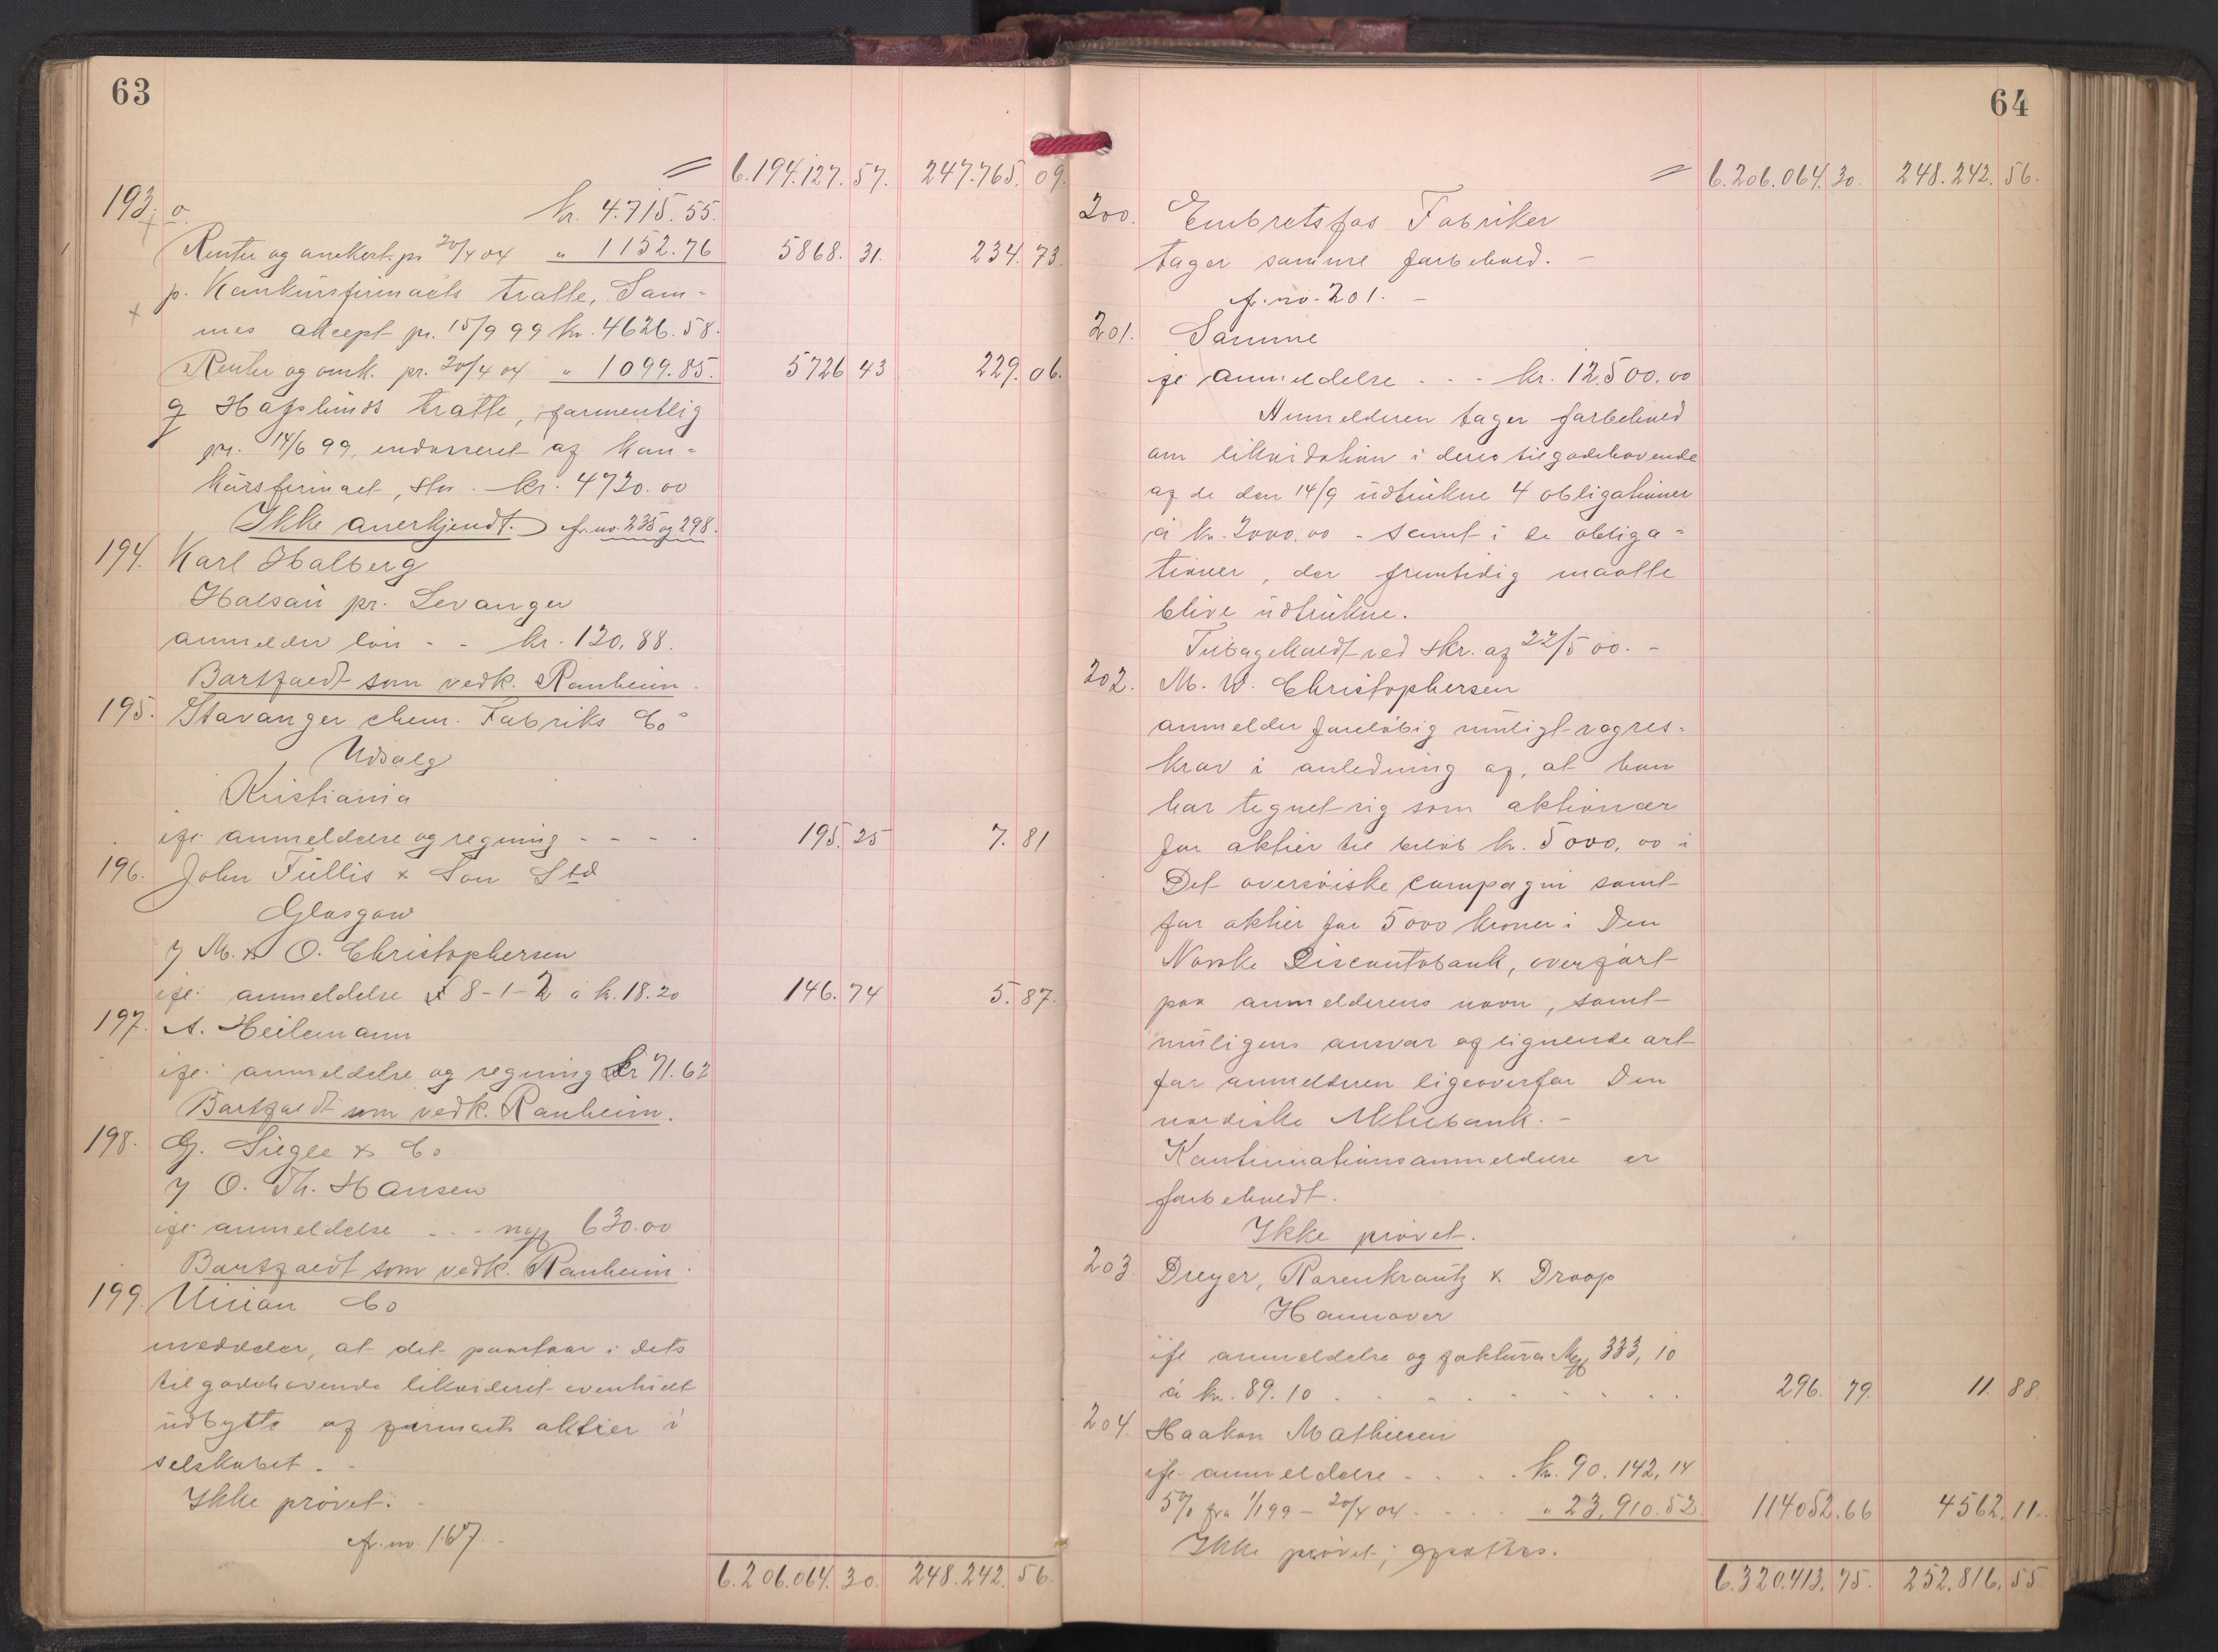 63
6.194.127.57. 247.765.09.
193. o. kr. 4.715.55.
Renter og omkost. pr 20/4 04 " 1152.76 5868.31. 234.73
p. Konkursfirmaets tratte, Sam-
mes aksept pr. 15/9 99 kr. 4626.58.
Renter og omk. pr. 20/4 04 " 1099.85. 5726 43 229.06.
q Hafslunds tratte, formentlig
pr. 14/6 99, endosseret af kon-
kursfirmaet, stor. kr. 4720.00
Ikke anerkjendt. cfr. no. 235 og 298.
194. Karl Halberg
Halsan pr. Levanger
anmelder løn - - kr. 120.88.
Bortfaldt som vedk. Ranheim.
195. Stavanger chem. Fabriks Co
Udsalg
Kristiania
ifl. anmeldelse og regning - - - - 195.25 7.81
196. John Tullis & Son Ltd
Glasgow
v/ M. & O. Christophersen
ifl. anmeldelse £ 8-1-2 à kr. 18.20 146.74 5.87.
197. A. Heilemann
ifl. anmeldelse og regning kr 71.62
Bortfaldt som vedk. Ranheim.
198. G. Siegle & Co
v/ O. Th. Hansen
ifl. anmeldelse - - - 630.00
Bortfaldt som vedk. Ranheim.
199. Union Co
meddeler, at det paastaar i dets
tilgodehavende likvideret eventuelt
udbytte af firmaets aktier i
selskabet. -
Ikke prøvet. -
cfr. no. 167. -
6.206.064.30. 248.242.56.
64
6.206.064.30. 248.242.56.
200. Embretsfos Fabriker
tager samme forbehold. -
cfr. no. 201. -
201. Samme
ifl anmeldelse - - - kr. 12.500.00
Anmelderen tager forbehold
om likvidation i deres tilgodehavende
af de den 14/9 udtrukne 4 obligationer
à kr. 2000.00 - samt i de obliga-
tioner, der fremtidig maatte
blive udtrukne.
Tilbagekaldt ved skr. af 22/5 00. -
202. M. W. Christophersen
anmelder foreløbig muligt regres-
krav i anledning af, at han
har tegnet sig som aktionær
for aktier til beløb kr. 5000,00 i
Det oversøiske compagni samt
for aktier for 5000 kroner i Den
Norske Discontobank, overført
paa anmelderens navn, samt
muligens ansvar af lignende art
for anmelderen ligeoverfor Den
nordiske Aktiebank. -
Kontinuationsanmeldelse er
forbeholdt.
Ikke prøvet.
203. Dreyer, Rosenkrantz & Droop
Hannover
ifl anmeldelse og faktura 333,10
à kr. 89.10 . . . . . . . 296.79. 11.88.
204. Haakon Mathiesen
ifl. anmeldelse - . . . kr. 90.142,14
5% fra 1/1 99 - 20/4 04 . . . . " 23.910.52 114052.66 4562.11.
Ikke prøvet; opsættes.
6.320.413.75. 252.816.55